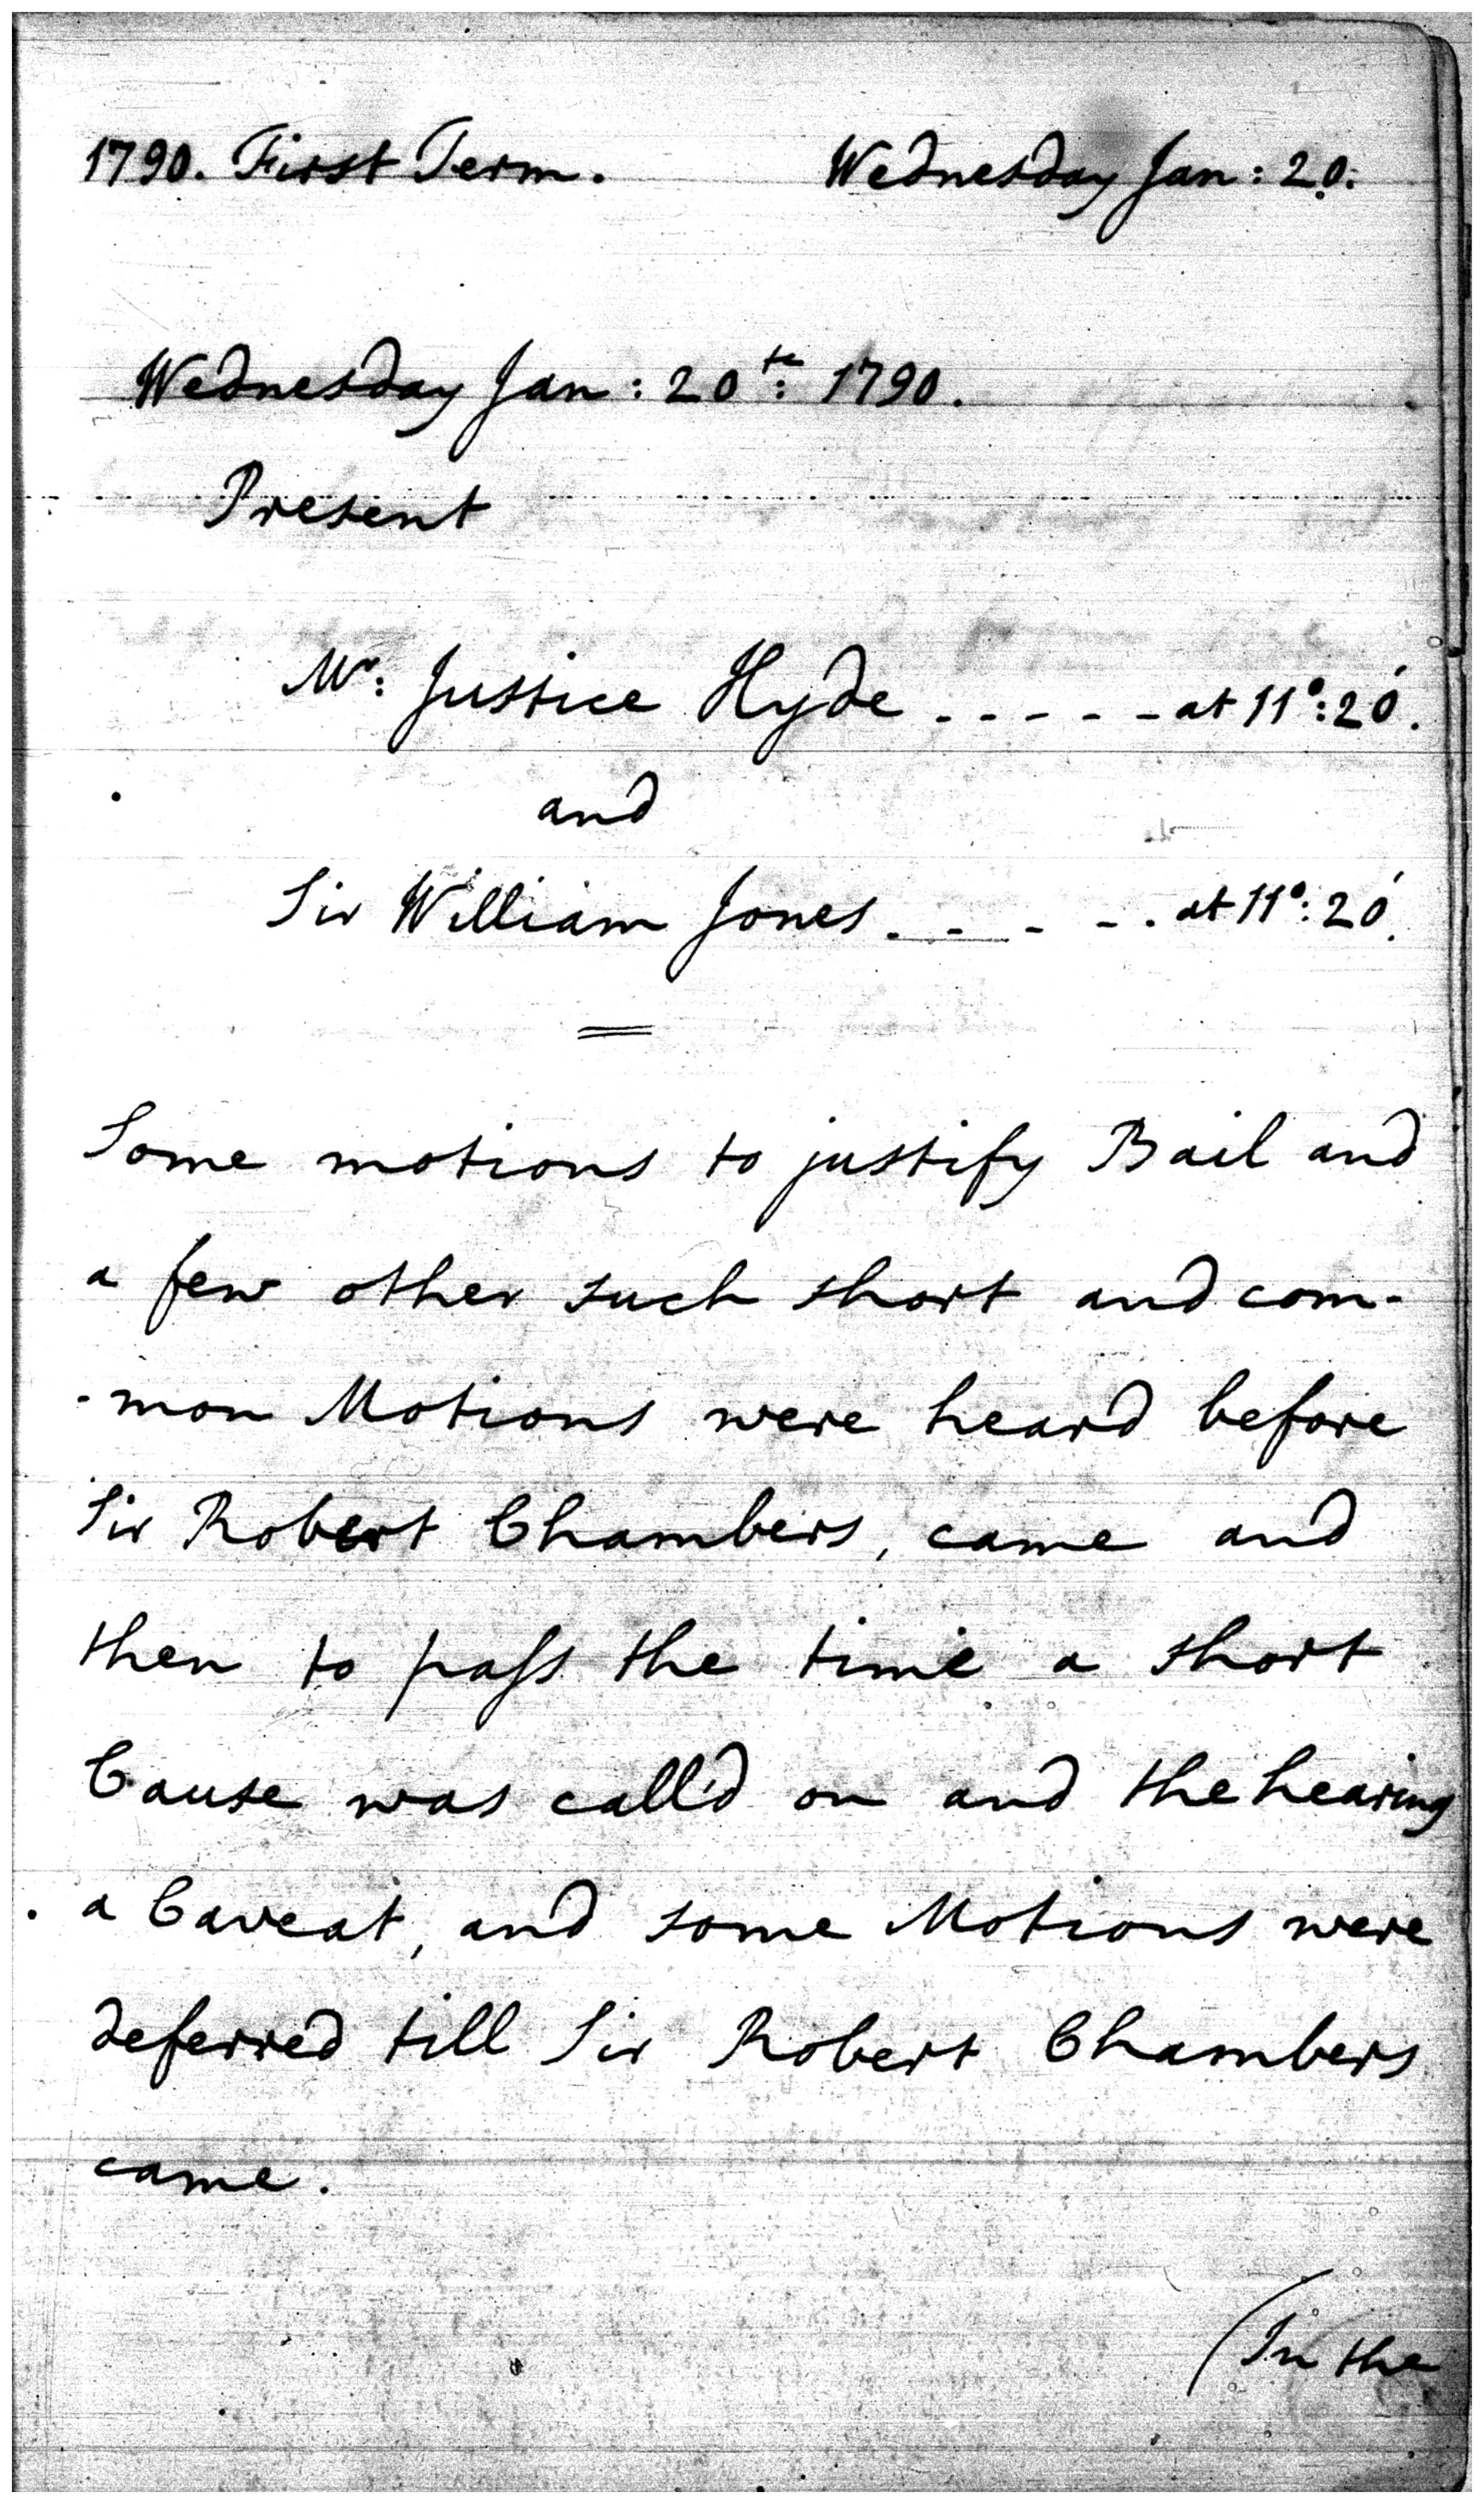 1790. First Term. Wednesday Jan: 20.
Wednesday Jan: 20th: 1790.
Present
Mr: Justice Hyde - - - - - at 11°:20'.
and
Sir William Jones - - - - - at 11°:20'.
Some motions to justify Bail and
a few other such short and com-
-mon Motions were heard before
Sir Robert Chambers, came and
then to paſs the time a short
Cause was call'd on and the hearing
a Caveat, and some Motions were
deferred till Sir Robert Chambers
came.
(In the